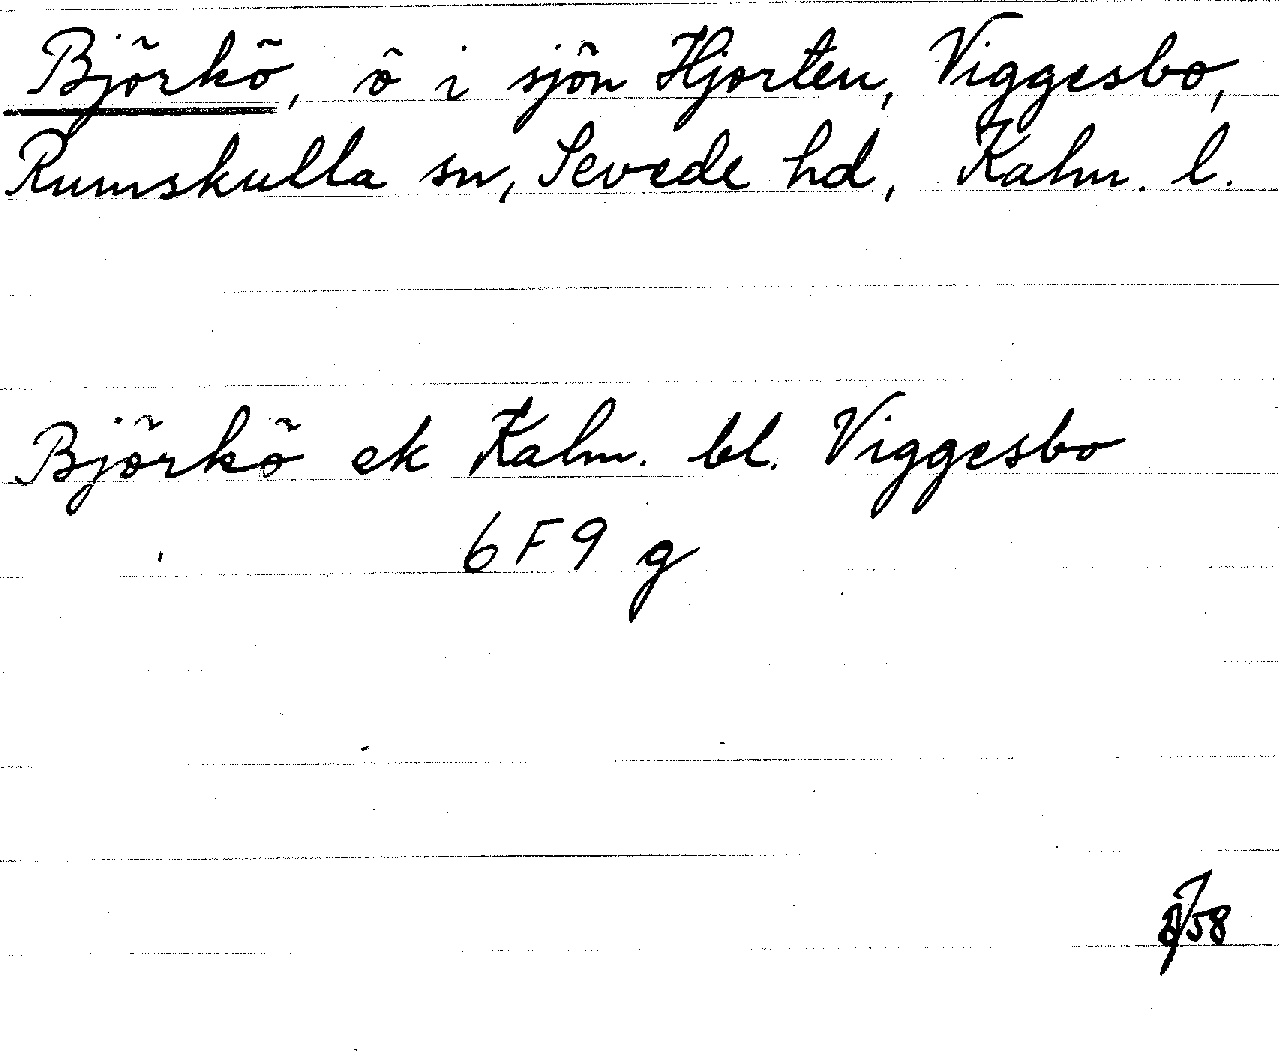 Björkö, ö i sjön Hjorten, Viggesbo,
Rumskulla sn, Sevede hd, Kalm. l.
Björkö ek Kalm. bl. Viggesbo
6 F 9 g